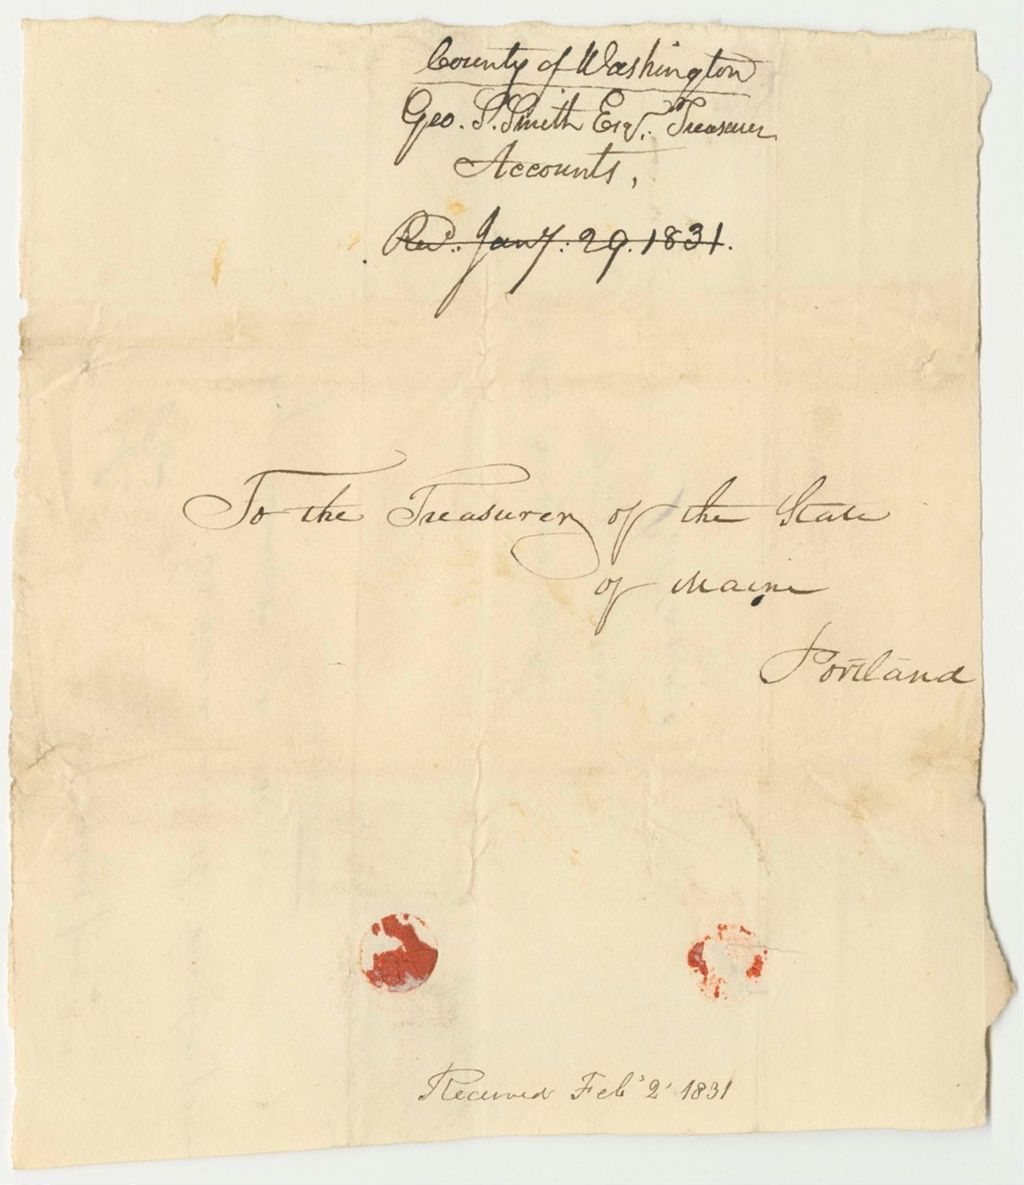 County of Washington
Geo. S. Smith Esqr. Treasurer
Accounts,
Recd. Jany. 29. 1831.
To the Treasurer of the State
of Maine
Portland
Received Feb' 2' 1831